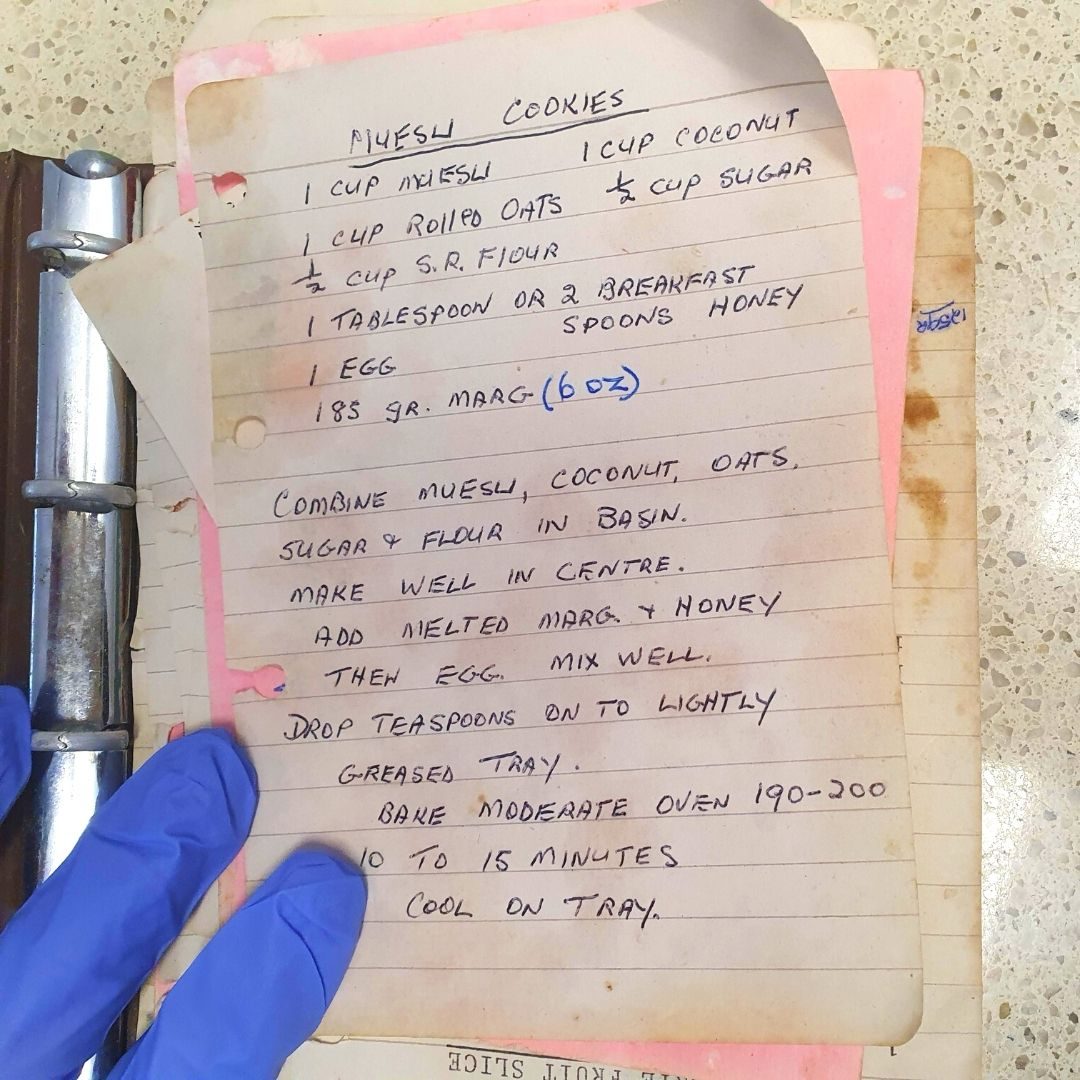 MUESLI COOKIES
1 CUP MUESLI 1 CUP COCONUT
1 CUP ROLLED OATS ½ CUP SUGAR
½ CUP S.R. FLOUR
1 TABLESPOON OR 2 BREAKFAST
SPOONS HONEY
1 EGG
185 gR. MARG (6 oz)
COMBINE MUESLI, COCONUT, OATS.
SUGAR & FLOUR IN BASIN.
MAKE WELL IN CENTRE.
ADD MELTED MARG. & HONEY
THEN EGG. MIX WELL.
DROP TEASPOONS ON TO LIGHTLY
GREASED TRAY.
BAKE MODERATE OVEN 190-200
10 TO 15 MINUTES
COOL ON TRAY.
125gR
FRUIT SLICE